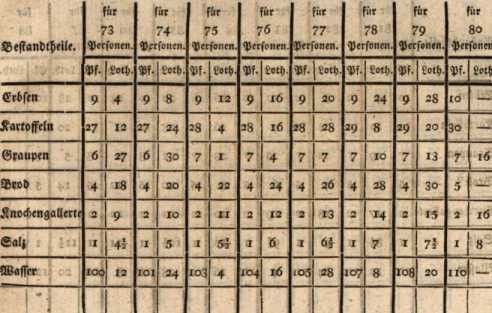 für für für für für für für für
73 74 75 76 77 78 79 80
Bestandtheile. Personen. Personen. Personen. Personen. Personen. Personen. Personen. Personen
Pf. Loth. Pf. Loth. Pf. Loth. Pf. Loth. Pf. Loth. Pf. Loth. Pf. Loth. Pf. Loth.
Erbsen 9 4 9 8 9 12 9 16 9 20 9 24 9 28 10 —
Kartoffeln 27 12 27 24 28 4 28 16 28 28 29 8 29 20 30 —
Graupen 6 27 6 30 7 1 7 4 7 7 7 10 7 13 7 16
Brod 4 18 4 20 4 22 4 24 4 26 4 28 4 30 5 —
Knochengallerte 2 9 2 10 2 11 2 12 2 13 2 14 2 15 2 16
Salz 1 4½ 1 5 1 5½ 1 6 1 6½ 1 7 1 7½ 1 8
Wasser 100 12 101 24 103 4 104 16 105 28 107 8 108 20 110 —